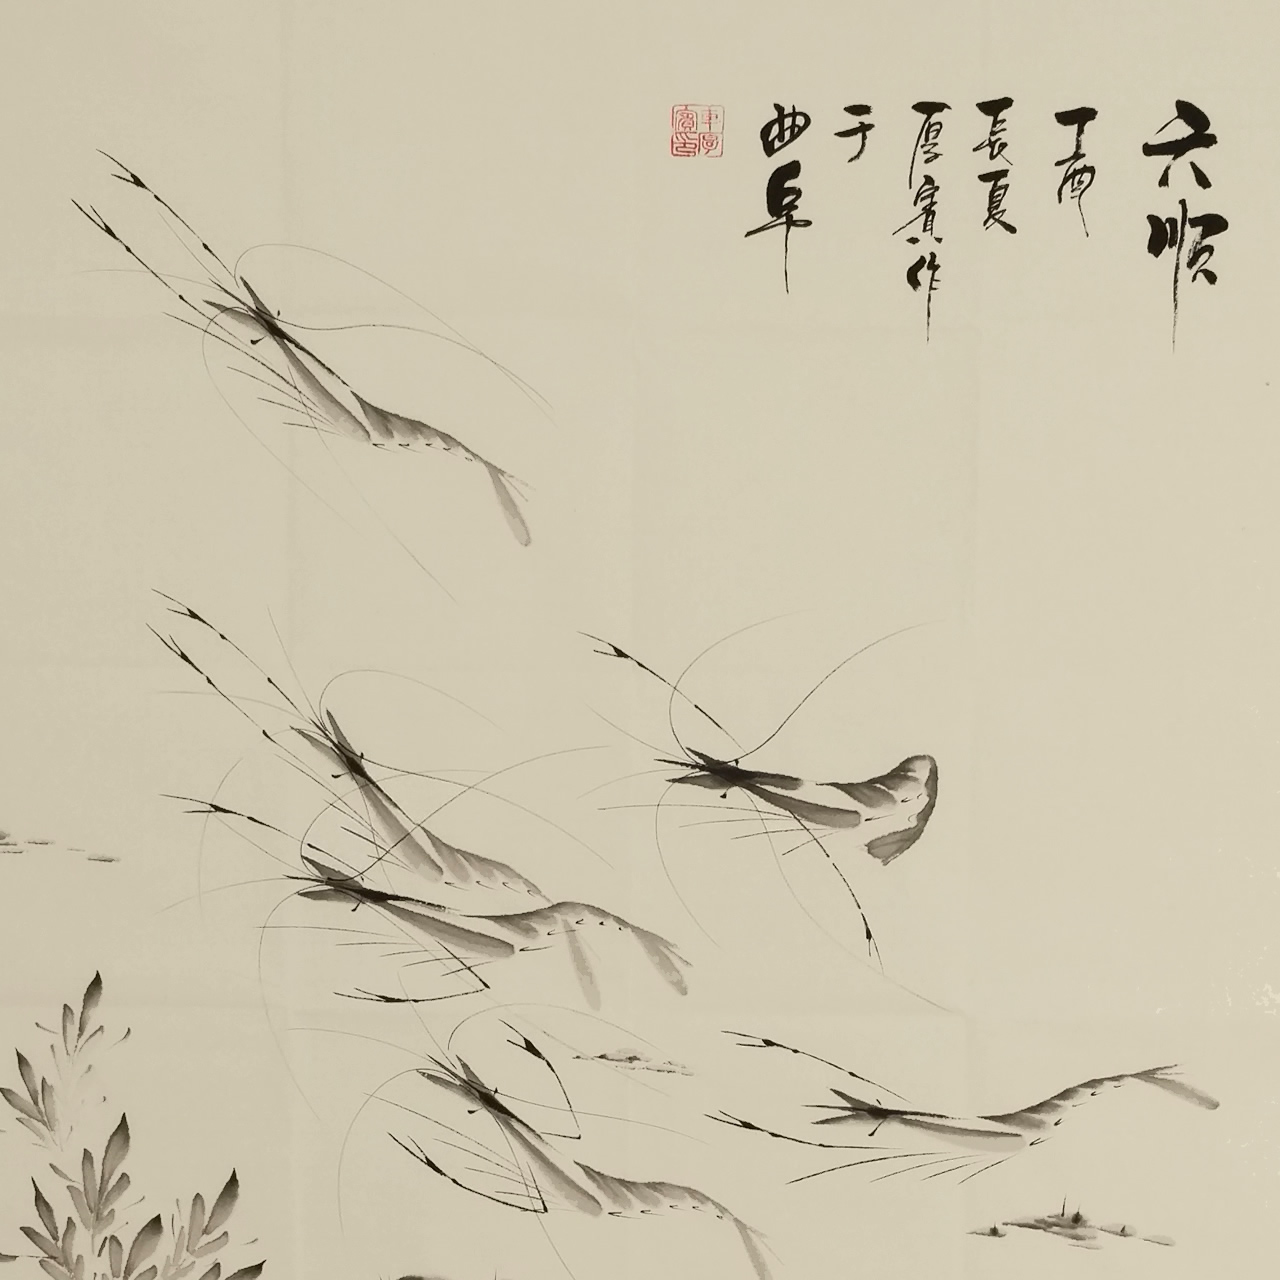 六顺
丁酉
長夏
厚賓作
于
曲阜